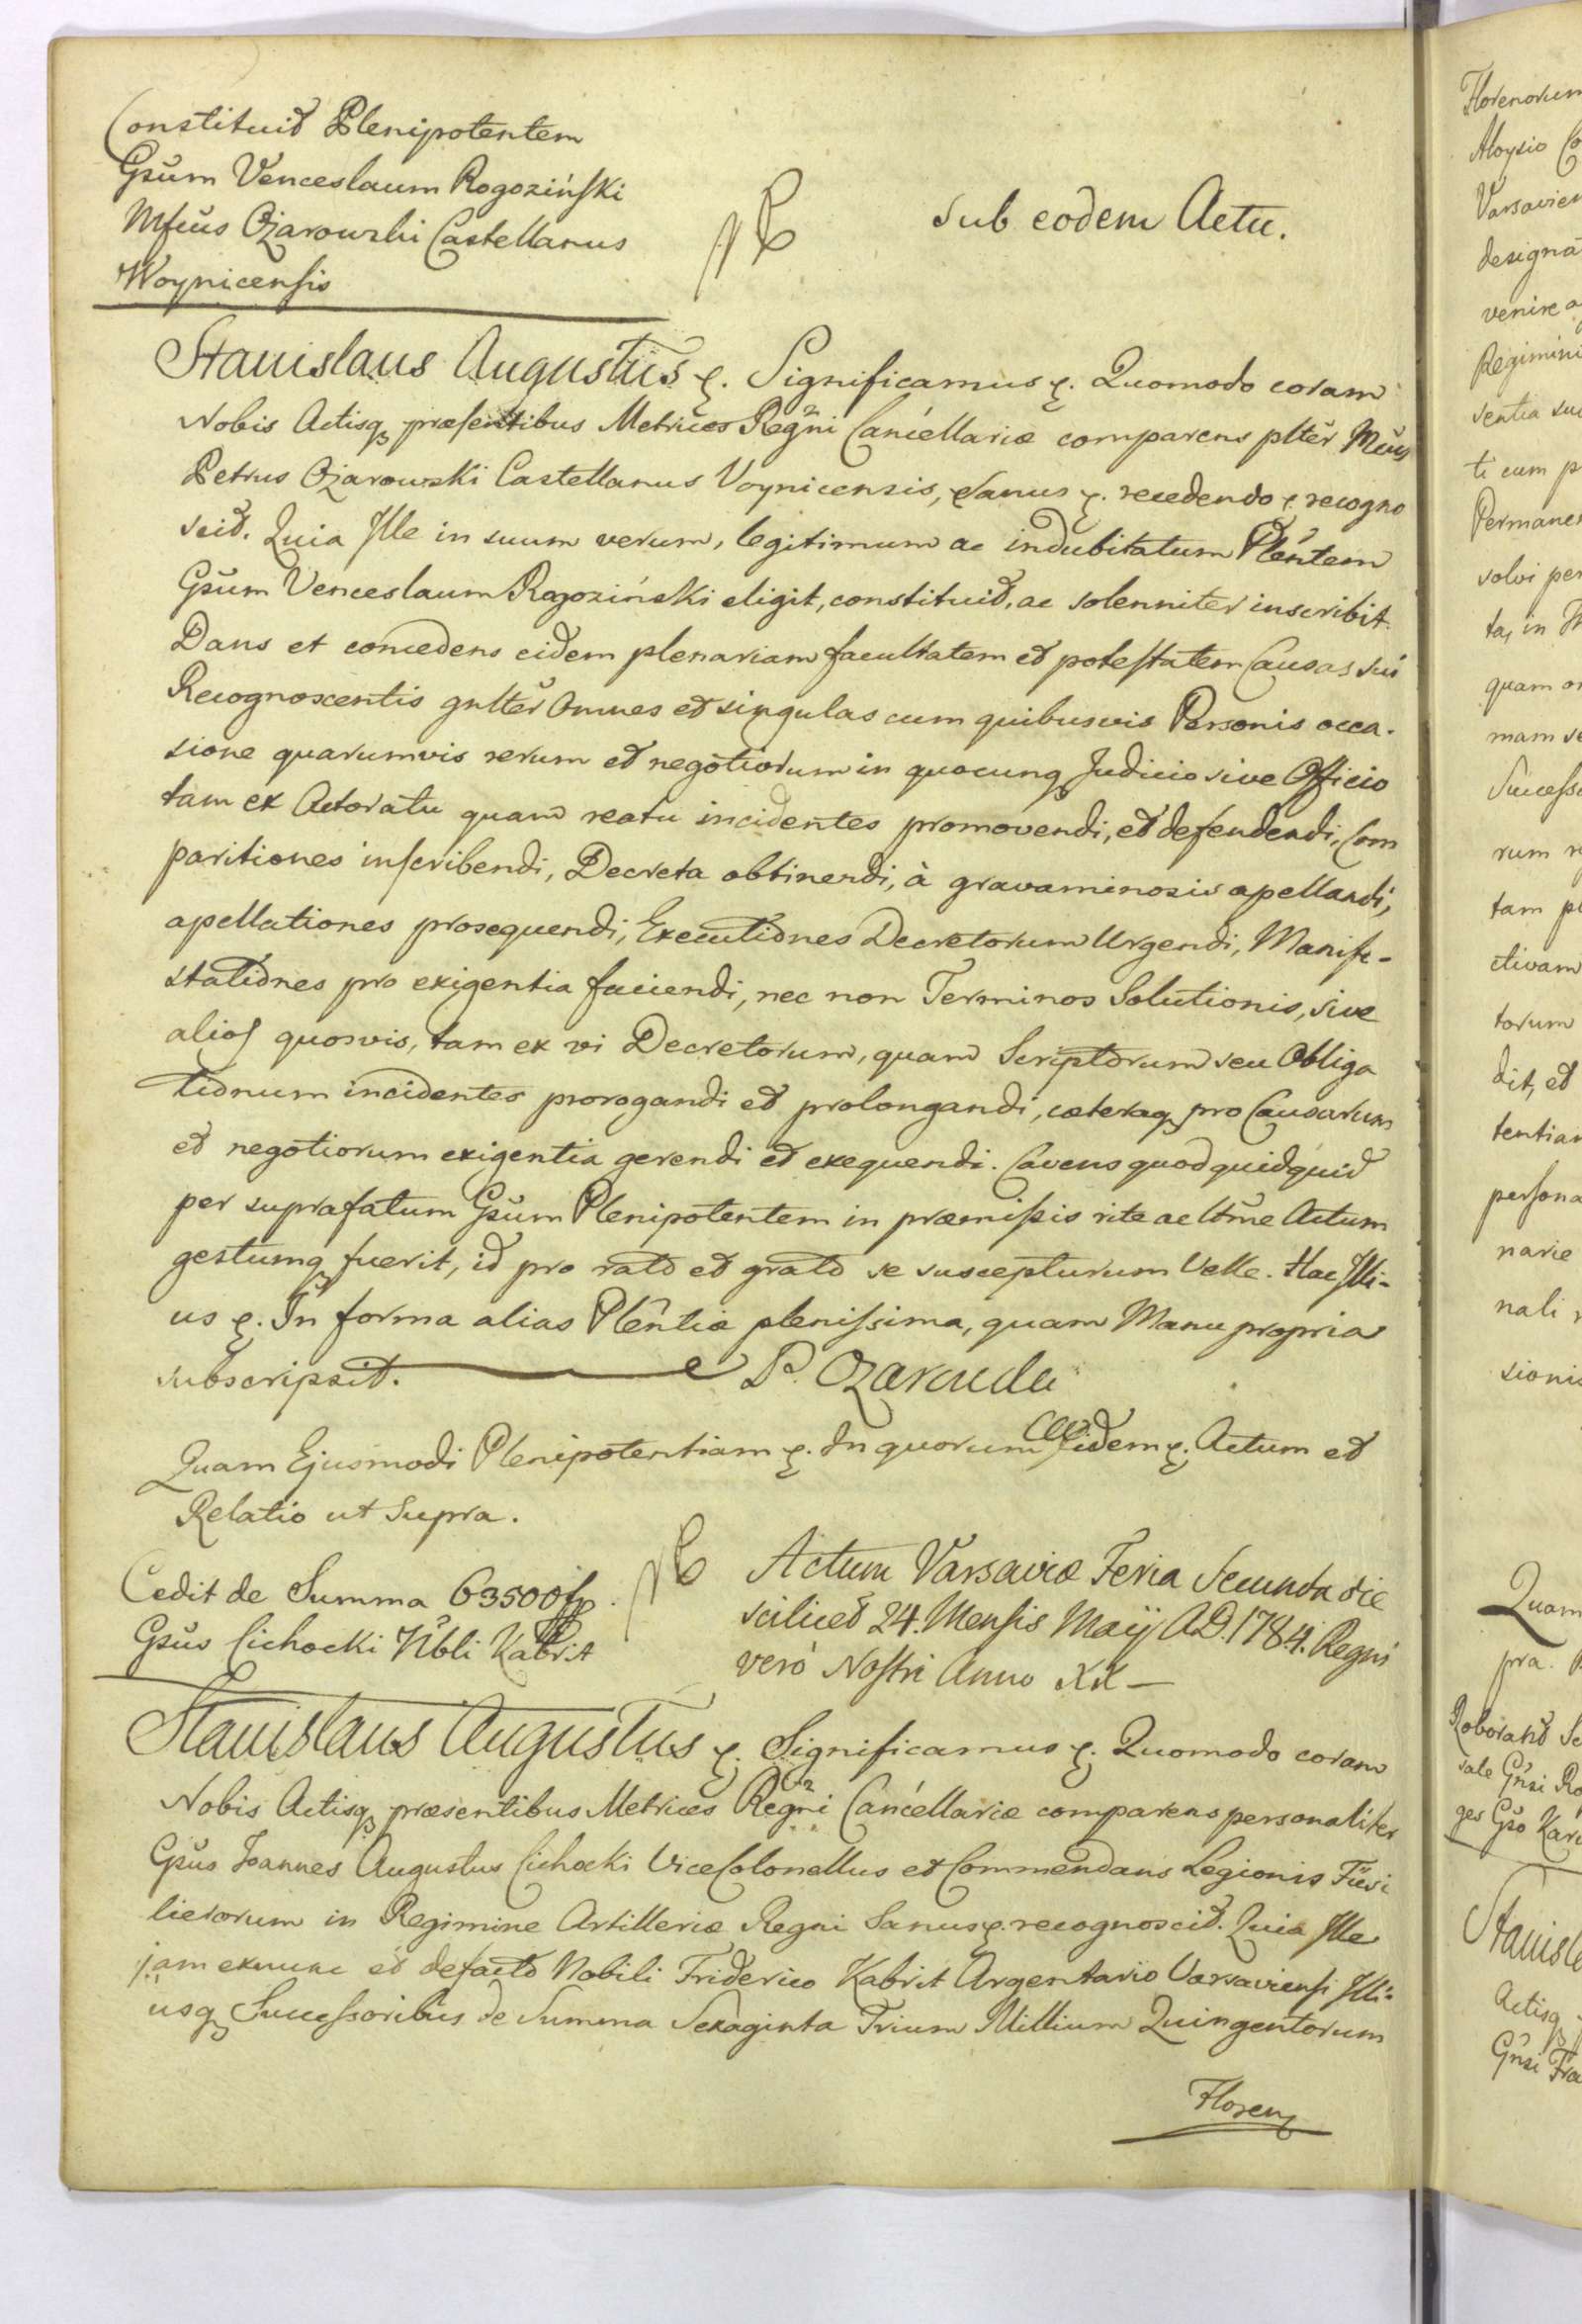 Constituit Plenipotentem
Gsum Venceslaum Rogoziński
Mfcus Ożarowski Castellanus
Woynicensis
Sub eodem Actu.
Stanislaus Augustus &. Significamus &. Quomodo coram
Nobis Actisq praesentibus Metrices Regni Cancellariae comparens plter Mcus
Petrus Ożarowski Castellanus Voynicensis, Sanus &. recedendo &. recogno
scit. Quia Ille in suum verum, legitimum ac indubitatum Plentem
Gsum Venceslaum Rogoziński eligit, constituit, ac solenniter inscribit.
Dans et concedens eidem plenariam facultatem et potestatem Causas sui
Recognoscentis gnlter Omnes et singulas cum quibusvis Personis occa-
sione quarumvis rerum et negotiorum in quocunq Judicio sive Officio
tam ex Actoratu quam reatu incidentes promovendi, et defendendi, Com
paritiones inscribendi, Decreta obtinendi, à gravaminosis apellandi,
apellationes prosequendi, Executiones Decretorum Urgendi, Manife-
stationes pro exigentia faciendi, nec non Terminos Solutionis, sive
alios quosvis, tam ex vi Decretorum, quam Scriptorum seu Obliga
tionum incidentes prorogandi et prolongandi, caeteraq pro Causarum
et negotiorum exigentia gerendi et exequendi. Cavens quod quidquid
per suprafatum Gsum Plenipotentem in praemissis rite ac ltme Actum
gestumq fuerit, id pro rato et grato se suscepturum Velle. Hac Illi-
us &. In forma alias Plentiae plenissima, quam Manu propria
subscripsit. P. Ożarowski
Quam Ejusmodi Plenipotentiam &. In quorum Fidem &. Actum et
Relatio ut Supra.
Cedit de Summa 63500 fp.
Gsus Cichocki Nbli Kabrit
Actum Varsaviae Feria Secunda die
scilicet 24. Mensis Maij A.D. 1784. Regni
verò Nostri Anno XX —
Stanislaus Augustus &. Significamus &. Quomodo coram
Nobis Actisq praesentibus Metrices Regni Cancellariae comparens personaliter
Gsus Joannes Augustus Cichocki ViceColonellus et Commendans Legionis Fusi
lierorum in Regimine Artilleriae Regni Sanus &. recognoscit. Quia Ille
jam exnunc et defacto Nobili Friderico Kabrit Argentario Varsaviensi Illi-
usq Successoribus de Summa Sexaginta Trium Millium Quingentorum
Floren